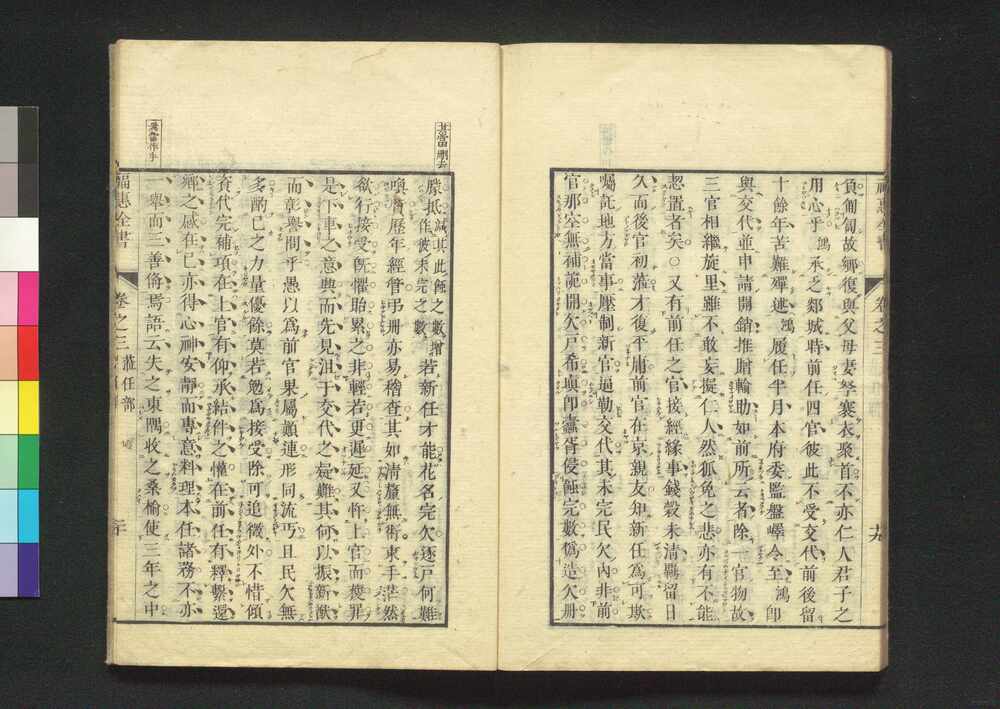 負匍匐故鄉復與父母妻孥褰衣聚首不亦仁人君子之
用心乎鴻承乏郯城時前任四官彼此不受交代前後留
十餘年苦難殫述鴻履任半月本府委監盤嶧令至鴻卽
與交代並申請開銷推賠輸助如前所云者除一官物故
三官相繼旋里雖不敢妄擬仁人然狐兔之悲亦有不能
恝置者矣○又有前任之官接經緣事錢穀未清羈留日
久而後官初蒞才復平庸前官在京親友知新任爲可欺
囑託地方當事壓制新官逼勒交代其未完民欠內非前
官那空無補詭開欠戶希塡卽蠹胥侵蝕完數僞造欠册
朦抵減其此飾之數增作彼未完之數若新任才能花名完欠逐戶何難
喚質歷年經管弔册亦易稽查其如清釐無術束手茫然
欲行接受旣懼貽累之非輕若更遲延又忤上官而獲罪
是下車之意興而先見沮于交代之疑難其何以振新猷
而彰譽問乎愚以爲前官果屬顚連形同流丐且民欠無
多酌己之力量優餘莫若勉爲接受除可追徵外不惜傾
資代完補項在上官有仰承結件之懽在前任有釋繫還
鄉之感在己亦得心神安靜而專意料理本任諸務不亦
一舉而三善備焉語云失之東隅收之桑榆使三年之中
福惠全書
卷之三
蒞任部
二十